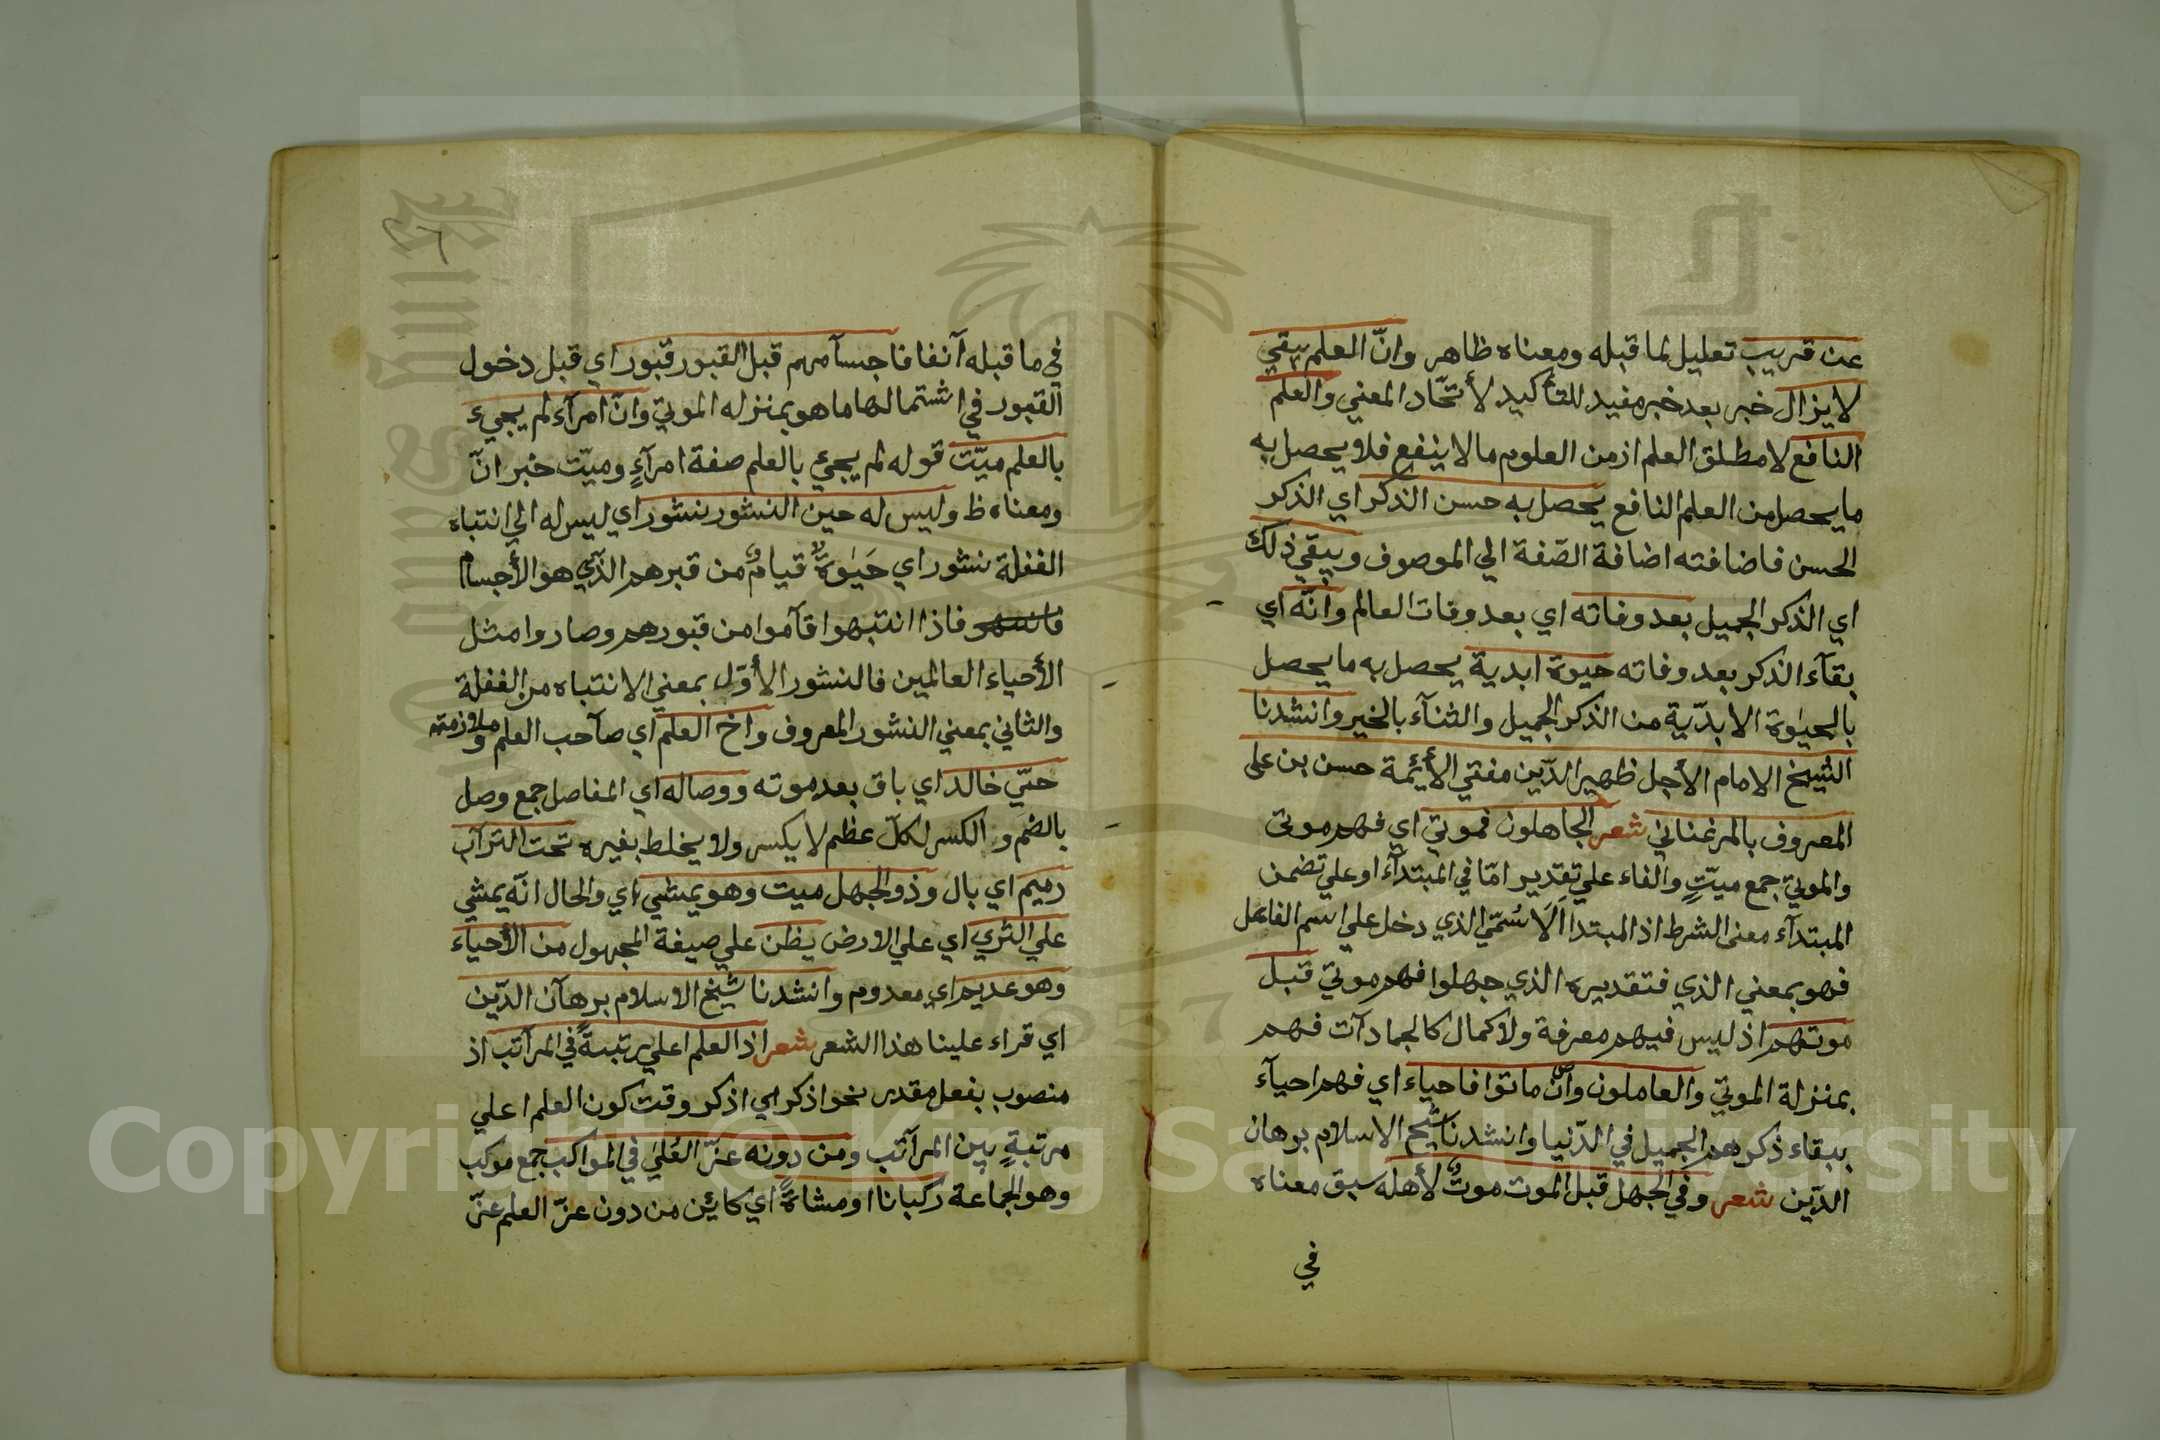 عن قريب تعليل لما قبله ومعناه ظاهر وانّ العلم يبقي
لا يزال خبر بعد خبر مفيد للتأكيد لأتحّاد المعني والعلم
النافع لا مطلق العلم اذ من العلوم ما لا ينفع فلا يحصل به
ما يحصل من العلم النافع يحصل به حسن الذكر اي الذكر
الحسن فاضافته اضافة الصّفة الي الموصوف ويبقي ذلك
اي الذكر الجميل بعد وفاته اي بعد وفات العالم وانّه اي
بقآء الذكر بعد وفاته حيوة ابدية يحصل به ما يحصل
بالحيوة الابدّية من الذكر الجميل والثنآء بالخير وانشدنا
الشيخ الامام الأجل ظهير الدّين مفتي الأئمة حسن بن على
المعروف بالمرغناني شعر الجاهلون فموتي اي فهم موتى
والموتي جمع ميّتٍ والفاء علي تقدير امّا في المبتدآء او علي تضمن
المبتدآء معنى الشرط اذ المبتدا الاسُمّي الذي دخل علي اسم الفاعل
فهو بمعني الذي فتقديره الذي جهلوا فهم موتي قبل
موتهم اذ ليس فيهم معرفة ولا كمال كالجمادآت فهم
بمنزلة الموتي والعاملون وآن ماتوا فاحياء اي فهم احيآء
ببقاء ذكرهم الجميل في الدّنيا وانشدنا شيخ الاسلام برهان
الدّين شعر وفي الجهل قبل الموت موتٌ لأهله سبق معناه
في
٢٦
في ما قبله آنفا فاجسآمهم قبل القبور قبور اي قبل دخول
القبور في اشتمالها ما هو بمنزله الموتي وانّ امرآء لم يجيء
بالعلم ميّت قوله لم يجئ بالعلم صفة امرآءٍ وميّت خبر انّ
ومعناه ظ وليس له حين النشور نشور اي ليس له الي انتباه
الغفلة نشور اي حَيٰوةٌ قيامٌ من قبرهم الذّي هو الأجسام
فاذا انتبهوا قآموا من قبورهم وصاروا مثل
الأحياء العالمين فالنشور الأوّل بمعني الانتباه من الغفلة
والثاني بمعني النشور المعروف واخ العلم اي صآحب العلم وملازمته
حتيّ خالد اي باق بعد موته ووصاله اي المفاصل جمع وصل
بالضم والكسر لكل عظم لا يكسر ولا يخلط بغيره تحت الترآب
رميم اي بال وذو الجهل ميت وهو يمشي اي والحال انّه يمشي
علي الثري اي علي الارض يظن علي صيغة المجهول من الأحياء
وهو عديم اي معدوم وانشدنا شيخ الاسلام برهآن الدّين
اي قراء علينا هذا الشعر شعر اذ العلم اعلي رتبةً في المرآتب اذ
منصوب بفعل مقدر نحو اذكر اي اذكر وقت كون العلم اعلي
مرتبةٍ بين المرآتب ومن دونه عزّ العُلي في المواكب جمع موكب
وهو الجماعة ركبانا او مشاةً اي كائن من دون عزّ العلم عزّ
Copyright © King Saud University
1957